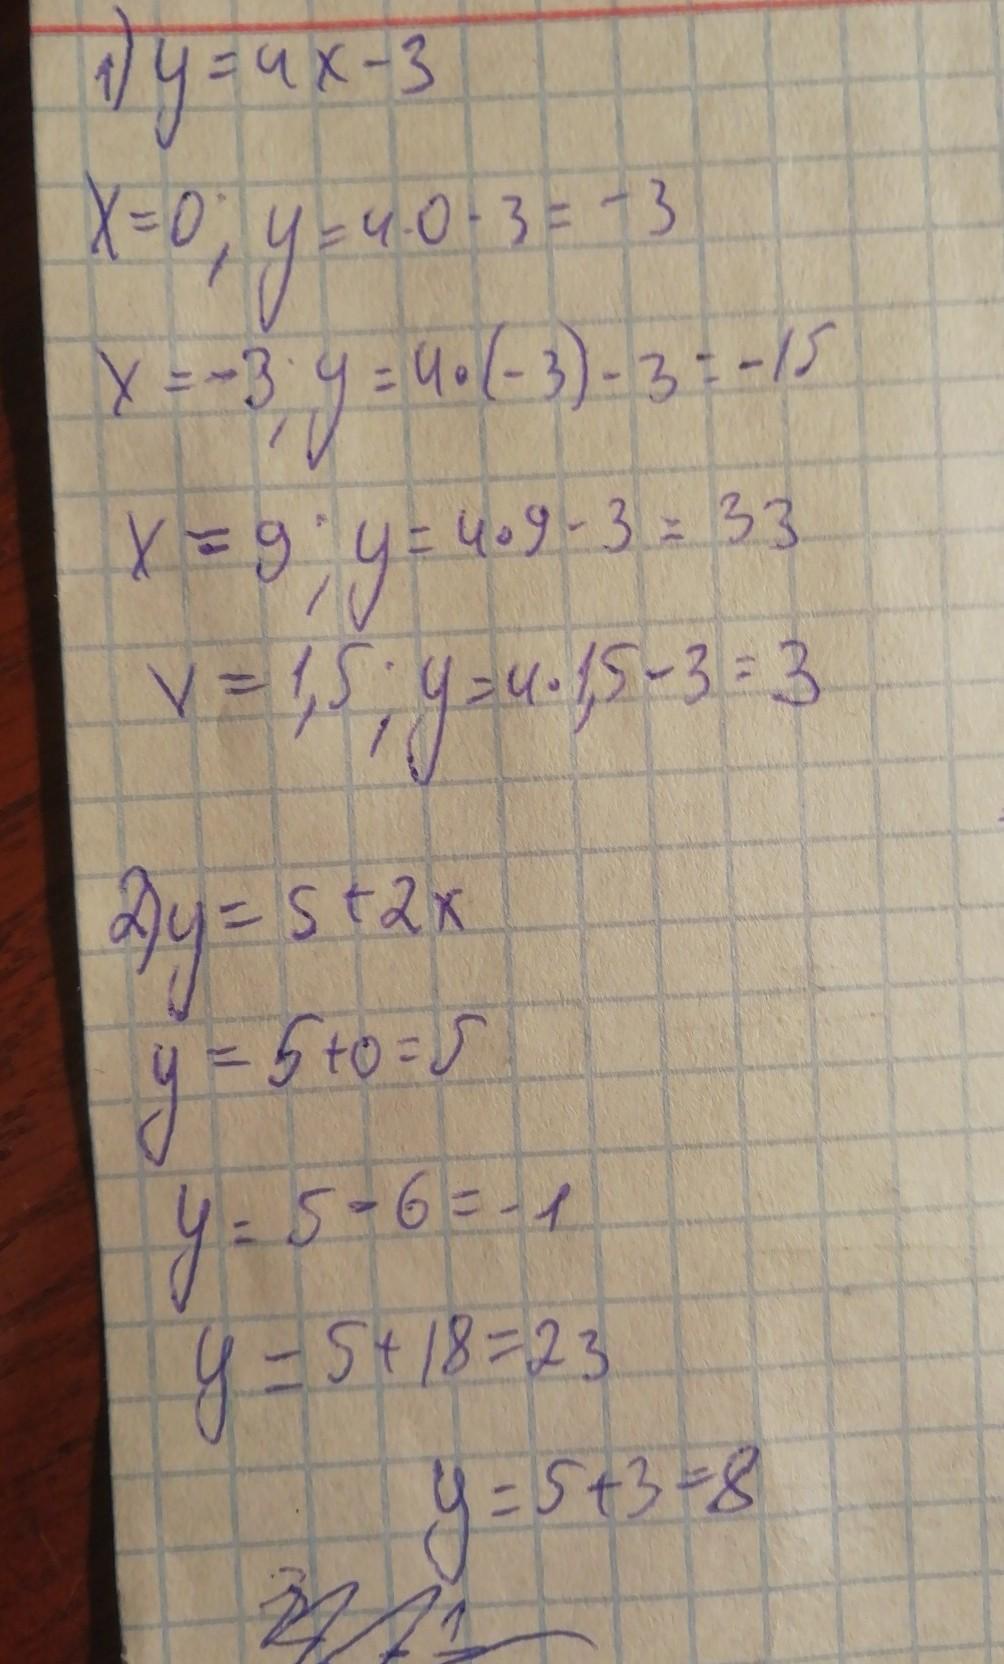 1) y = 4x - 3
x = 0; y = 4·0 - 3 = -3
x = -3; y = 4·(-3) - 3 = -15
x = 9; y = 4·9 - 3 = 33
x = 1,5; y = 4·1,5 - 3 = 3
2) y = 5 + 2x
y = 5 + 0 = 5
y = 5 - 6 = -1
y = 5 + 18 = 23
y = 5 + 3 = 8